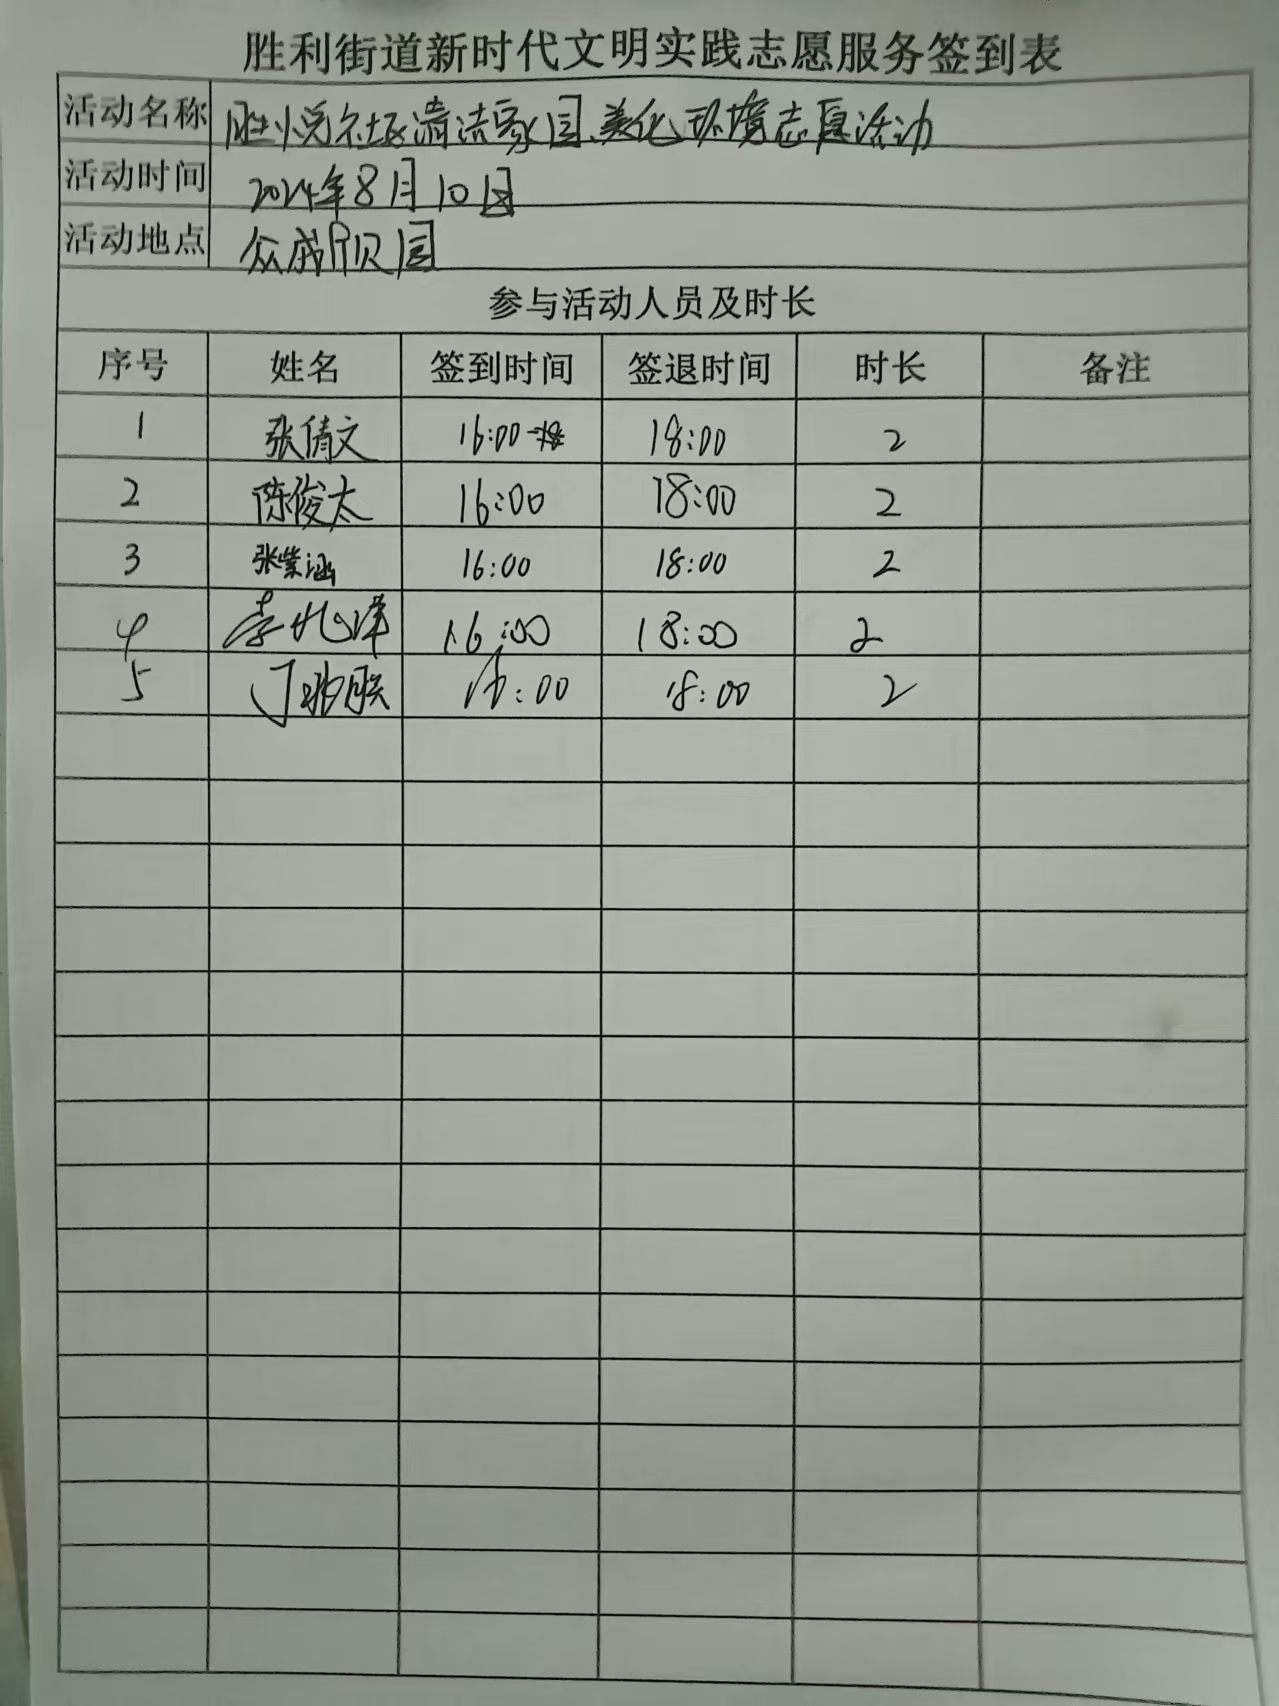 胜利街道新时代文明实践志愿服务签到表
活动名称 胜悦社区清洁家园、美化环境志愿活动
活动时间 2024年8月10日
活动地点 众成府贝园
参与活动人员及时长
序号 姓名 签到时间 签退时间 时长 备注
1 张倩文 16:00 18:00 2
2 陈俊太 16:00 18:00 2
3 张紫涵 16:00 18:00 2
4 李兆洋 16:00 18:00 2
5 丁 16:00 18:00 2